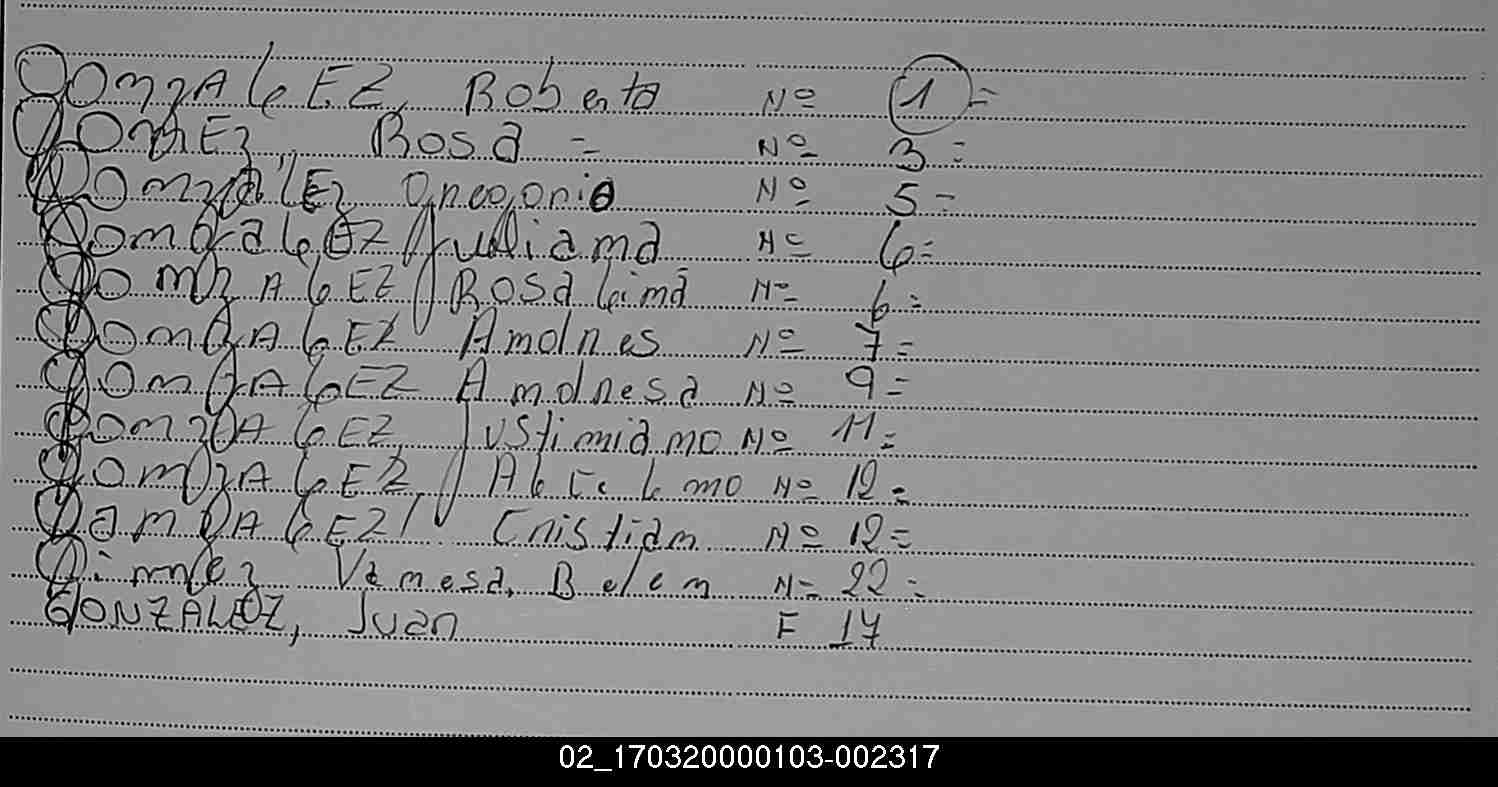 GOnzALEZ, Roberto Nº 1=
GOmEz, Rosa = Nº 3=
GOnzaLEz Gregorio Nº 5=
GonzaLEZ Juliana Nº 6=
GonzALEZ Rosa Lina Nº 6=
GonzALEZ Andres Nº 7=
GonzALEZ Andresa Nº 9=
GonzALEZ, Justiniano Nº 11=
GonzALEZ, Nº 12=
GonzALEZ, Cristian Nº 12=
Vanesa, Belen N= 22=
GONZALEZ, Juan F 17
02_170320000103-002317